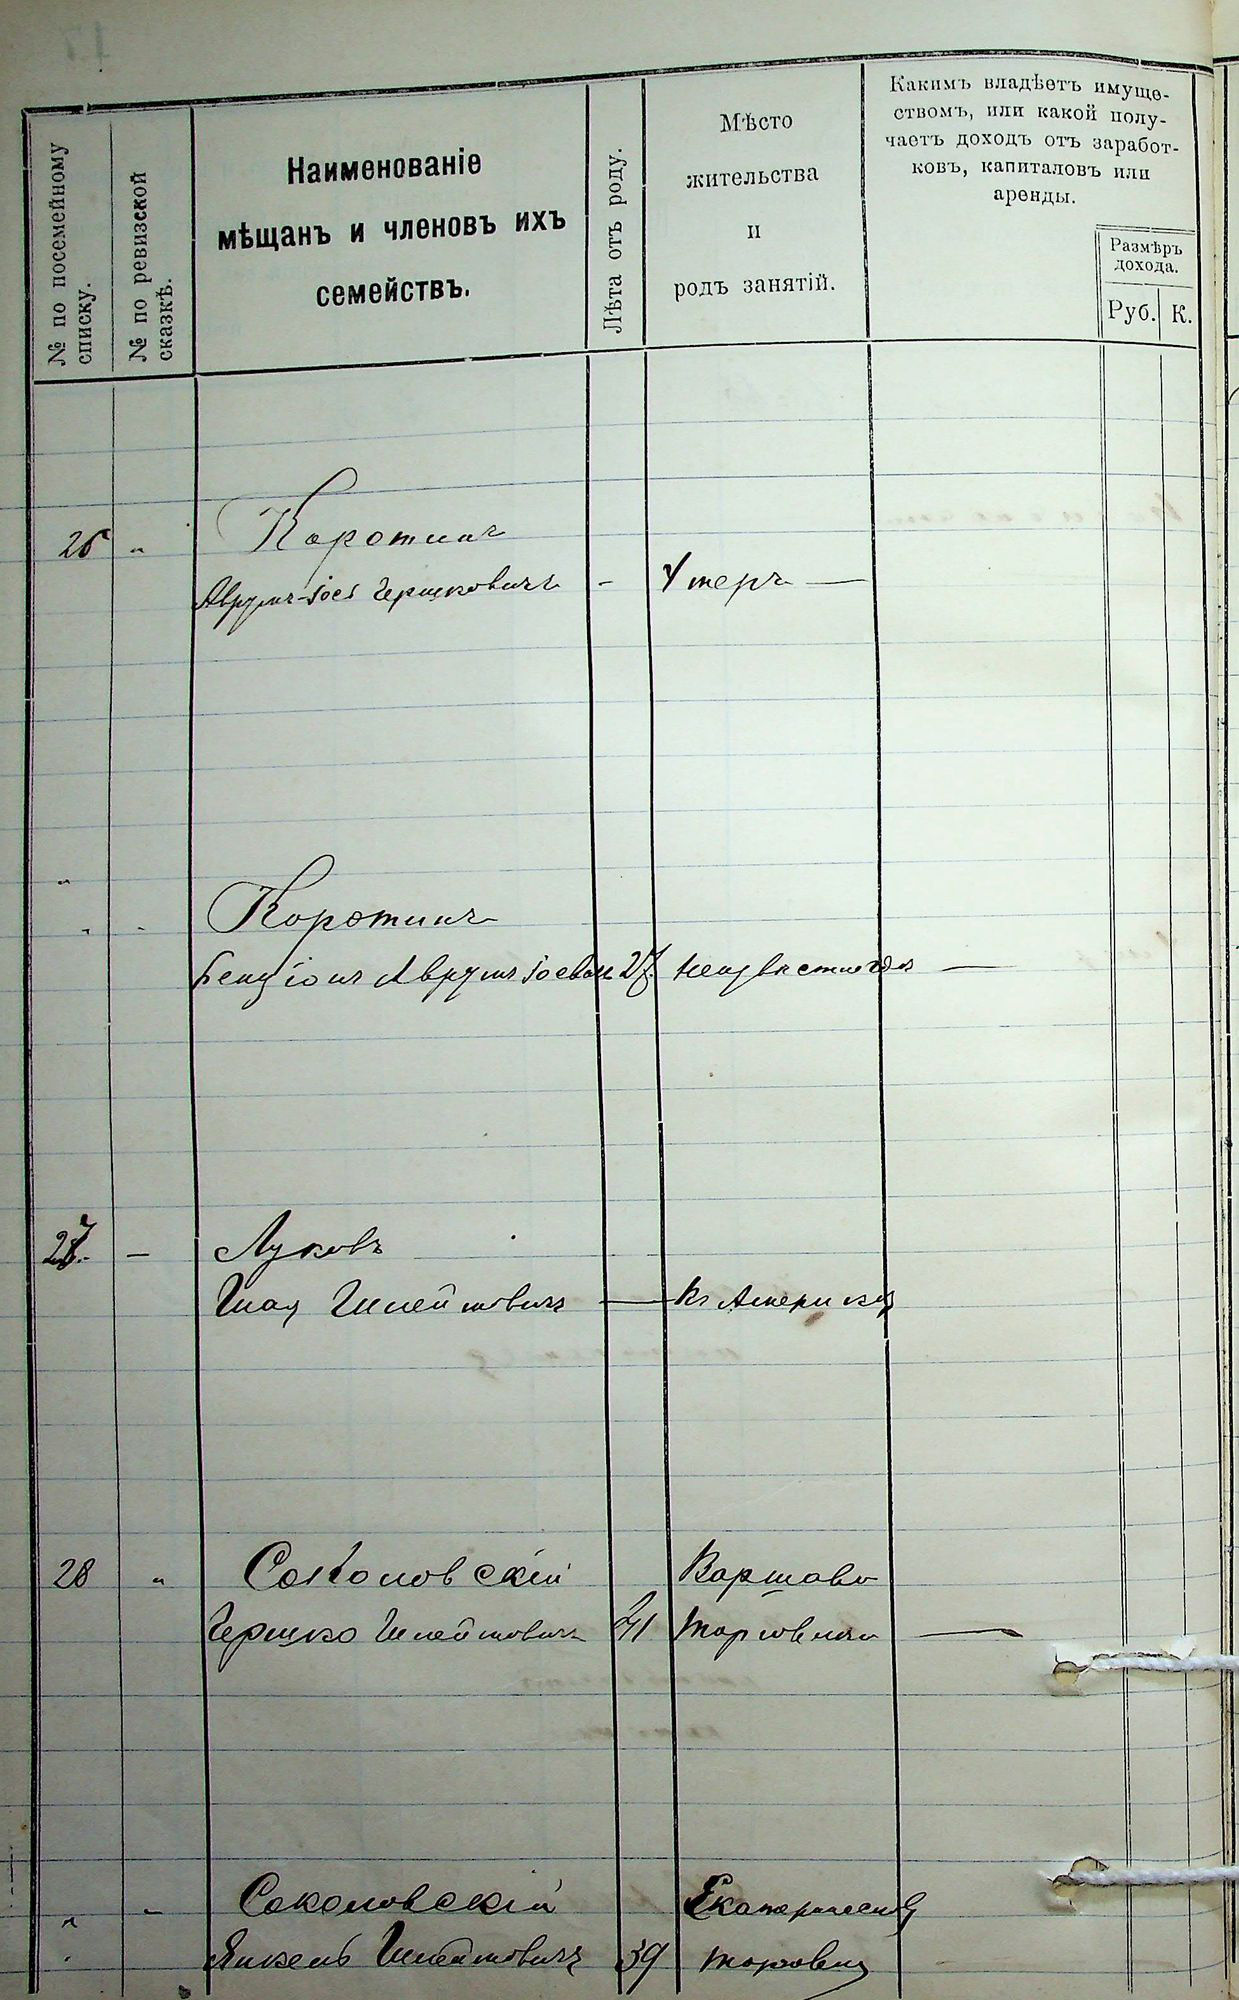 № по посемейному
списку.
№ по ревизской
сказкѣ.
Наименованіе
мѣщанъ и членовъ ихъ
семействъ.
Лѣта отъ роду.
Мѣсто
жительства
и
родъ занятій.
Какимъ владѣетъ имуще-
ствомъ, или какой полу-
чаетъ доходъ отъ заработ-
ковъ, капиталовъ или
аренды.
Размѣръ
дохода.
Руб. К.
26 " Коротинъ
Аврумъ-Іосъ Гершковичъ - Умеръ —
" Коротинъ
" - Бенціонъ Аврумъ Іосевъ 27. неизвѣстно гдѣ —
27. — Луковъ
Шая Шлеймовичъ — въ Америкѣ
28 " Соколовскій Варшава
Гершко Шлеймовичъ 41 торговля —
" " Соколовскій
" Янкель Шлеймовичъ 39 торговля